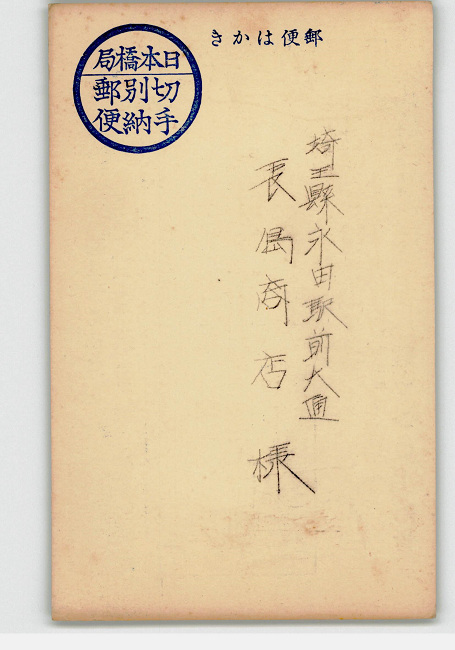 郵便はかき
日本橋局
切手
別納
郵便
埼玉縣永田駅前大通
長岡商店様